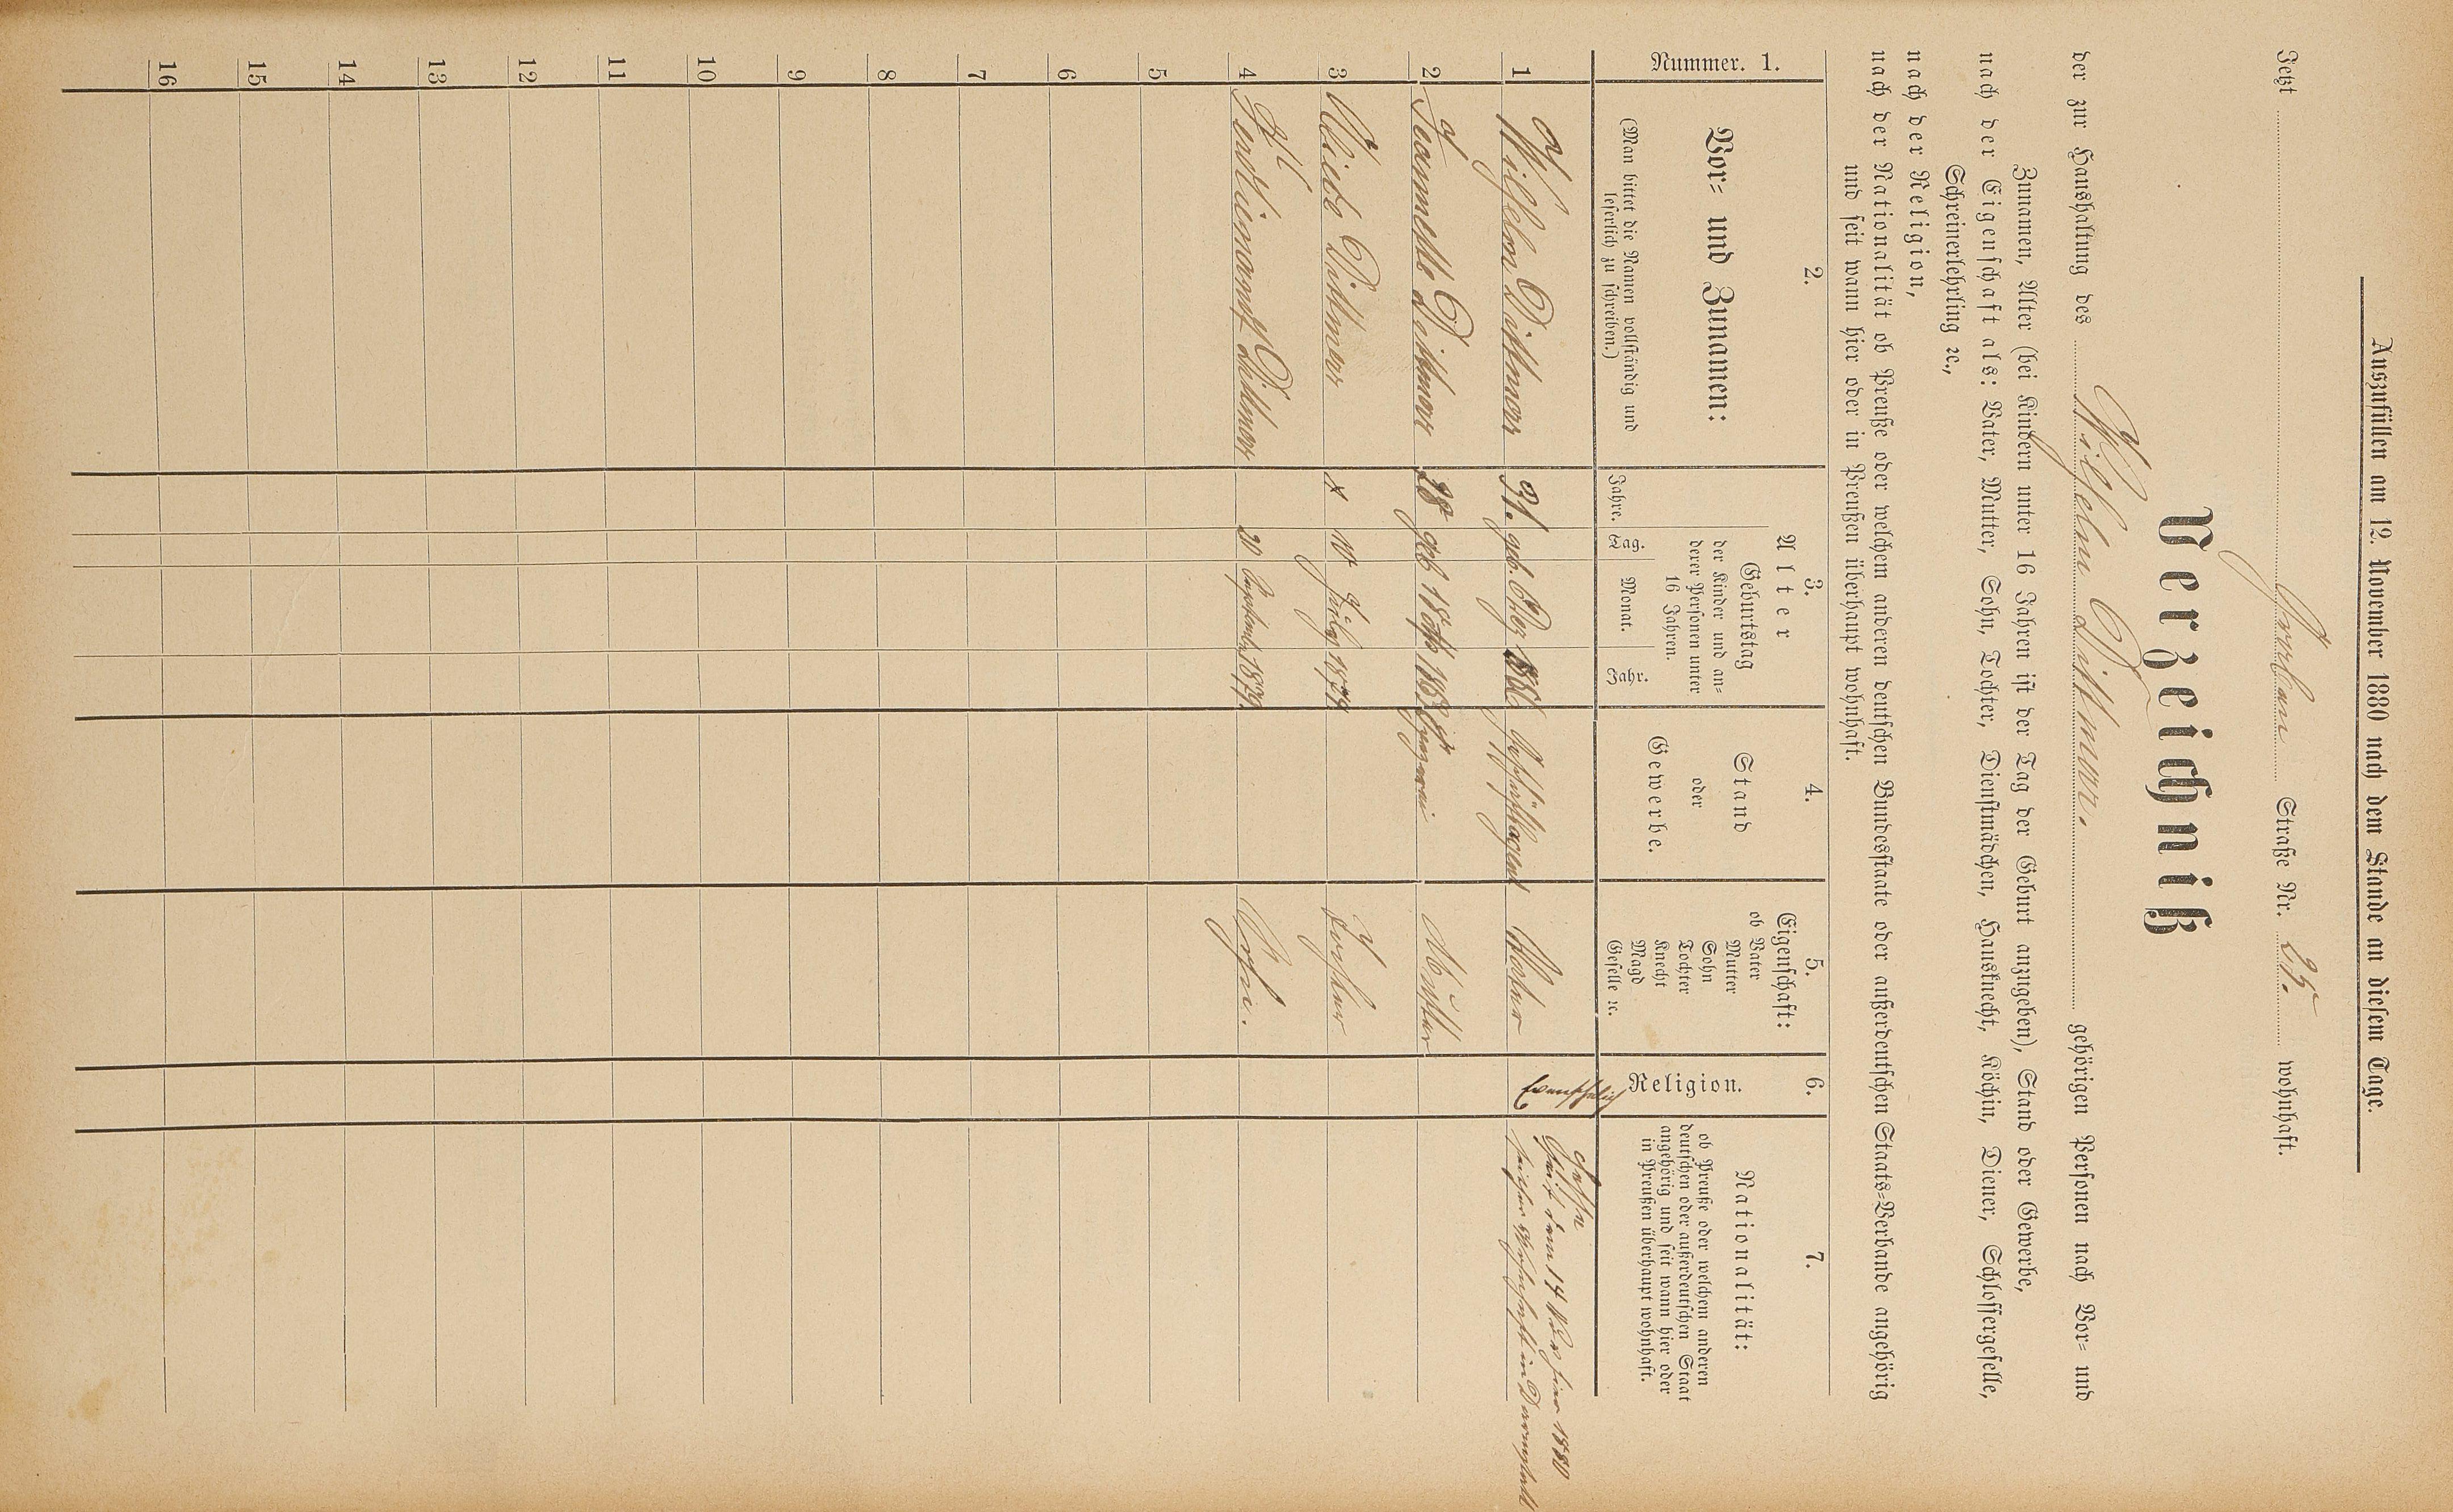 Auszufüllen am 12. November 1880 nach dem Stande an diesem Tage.
Jetzt Straße Nr. 25. wohnhaft.
Verzeichniß
der zur Haushaltung des Wilhelm Dittmar. gehörigen Personen nach Vor- und
Zunamen, Alter (bei Kindern unter 16 Jahren ist der Tag der Geburt anzugeben), Stand oder Gewerbe,
nach der Eigenschaft als: Vater, Mutter, Sohn, Tochter, Dienstmädchen, Hausknecht, Köchin, Diener, Schlossergeselle,
Schreinerlehrling ꝛc.,
nach der Religion,
nach der Nationalität ob Preuße oder welchem anderen deutschen Bundesstaate oder außerdeutschen Staats-Verbande angehörig
und seit wann hier oder in Preußen überhaupt wohnhaft.
Nummer. 1.
2.
Vor- und Zunamen:
(Man bittet die Namen vollständig und
leserlich zu schreiben.)
3.
Alter
Geburtstag
der Kinder und an-
derer Personen unter
16 Jahren.
Jahre.
Tag.
Monat.
Jahr.
4.
Stand
oder
Gewerbe.
5.
Eigenschaft:
ob Vater
Mutter
Sohn
Tochter
Knecht
Magd
Geselle ꝛc.
6.
Religion.
7.
Nationalität:
ob Preuße oder welchem anderen
deutschen oder außerdeutschen Staat
angehörig und seit wann hier oder
in Preußen überhaupt wohnhaft.
Hesse
Seit dem 14 hier 1880
1 Wilhelm Dittmar 31. geb. Vater früher Wohnhaft in Darmstadt
2 Jeannette Dittmar 28 geb 18 Mutter
3 Dittmar 10 Tochter
4 Ferdienand Dittmar 20 September 1879 Sohn.
5
6
7
8
9
10
11
12
13
14
15
16